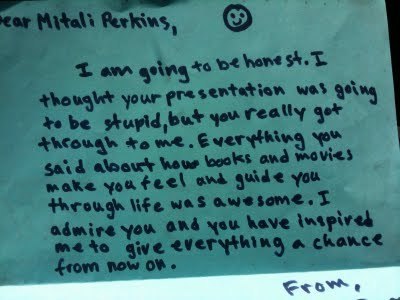 ear Mitali Perkins,
I am going to be honest. I
thought your presentation was going
to be stupid, but you really got
through to me. Everything you
said about how books and movies
make you feel and guide you
through life was awesome. I
admire you and you have inspired
me to give everything a chance
from now on.
From,